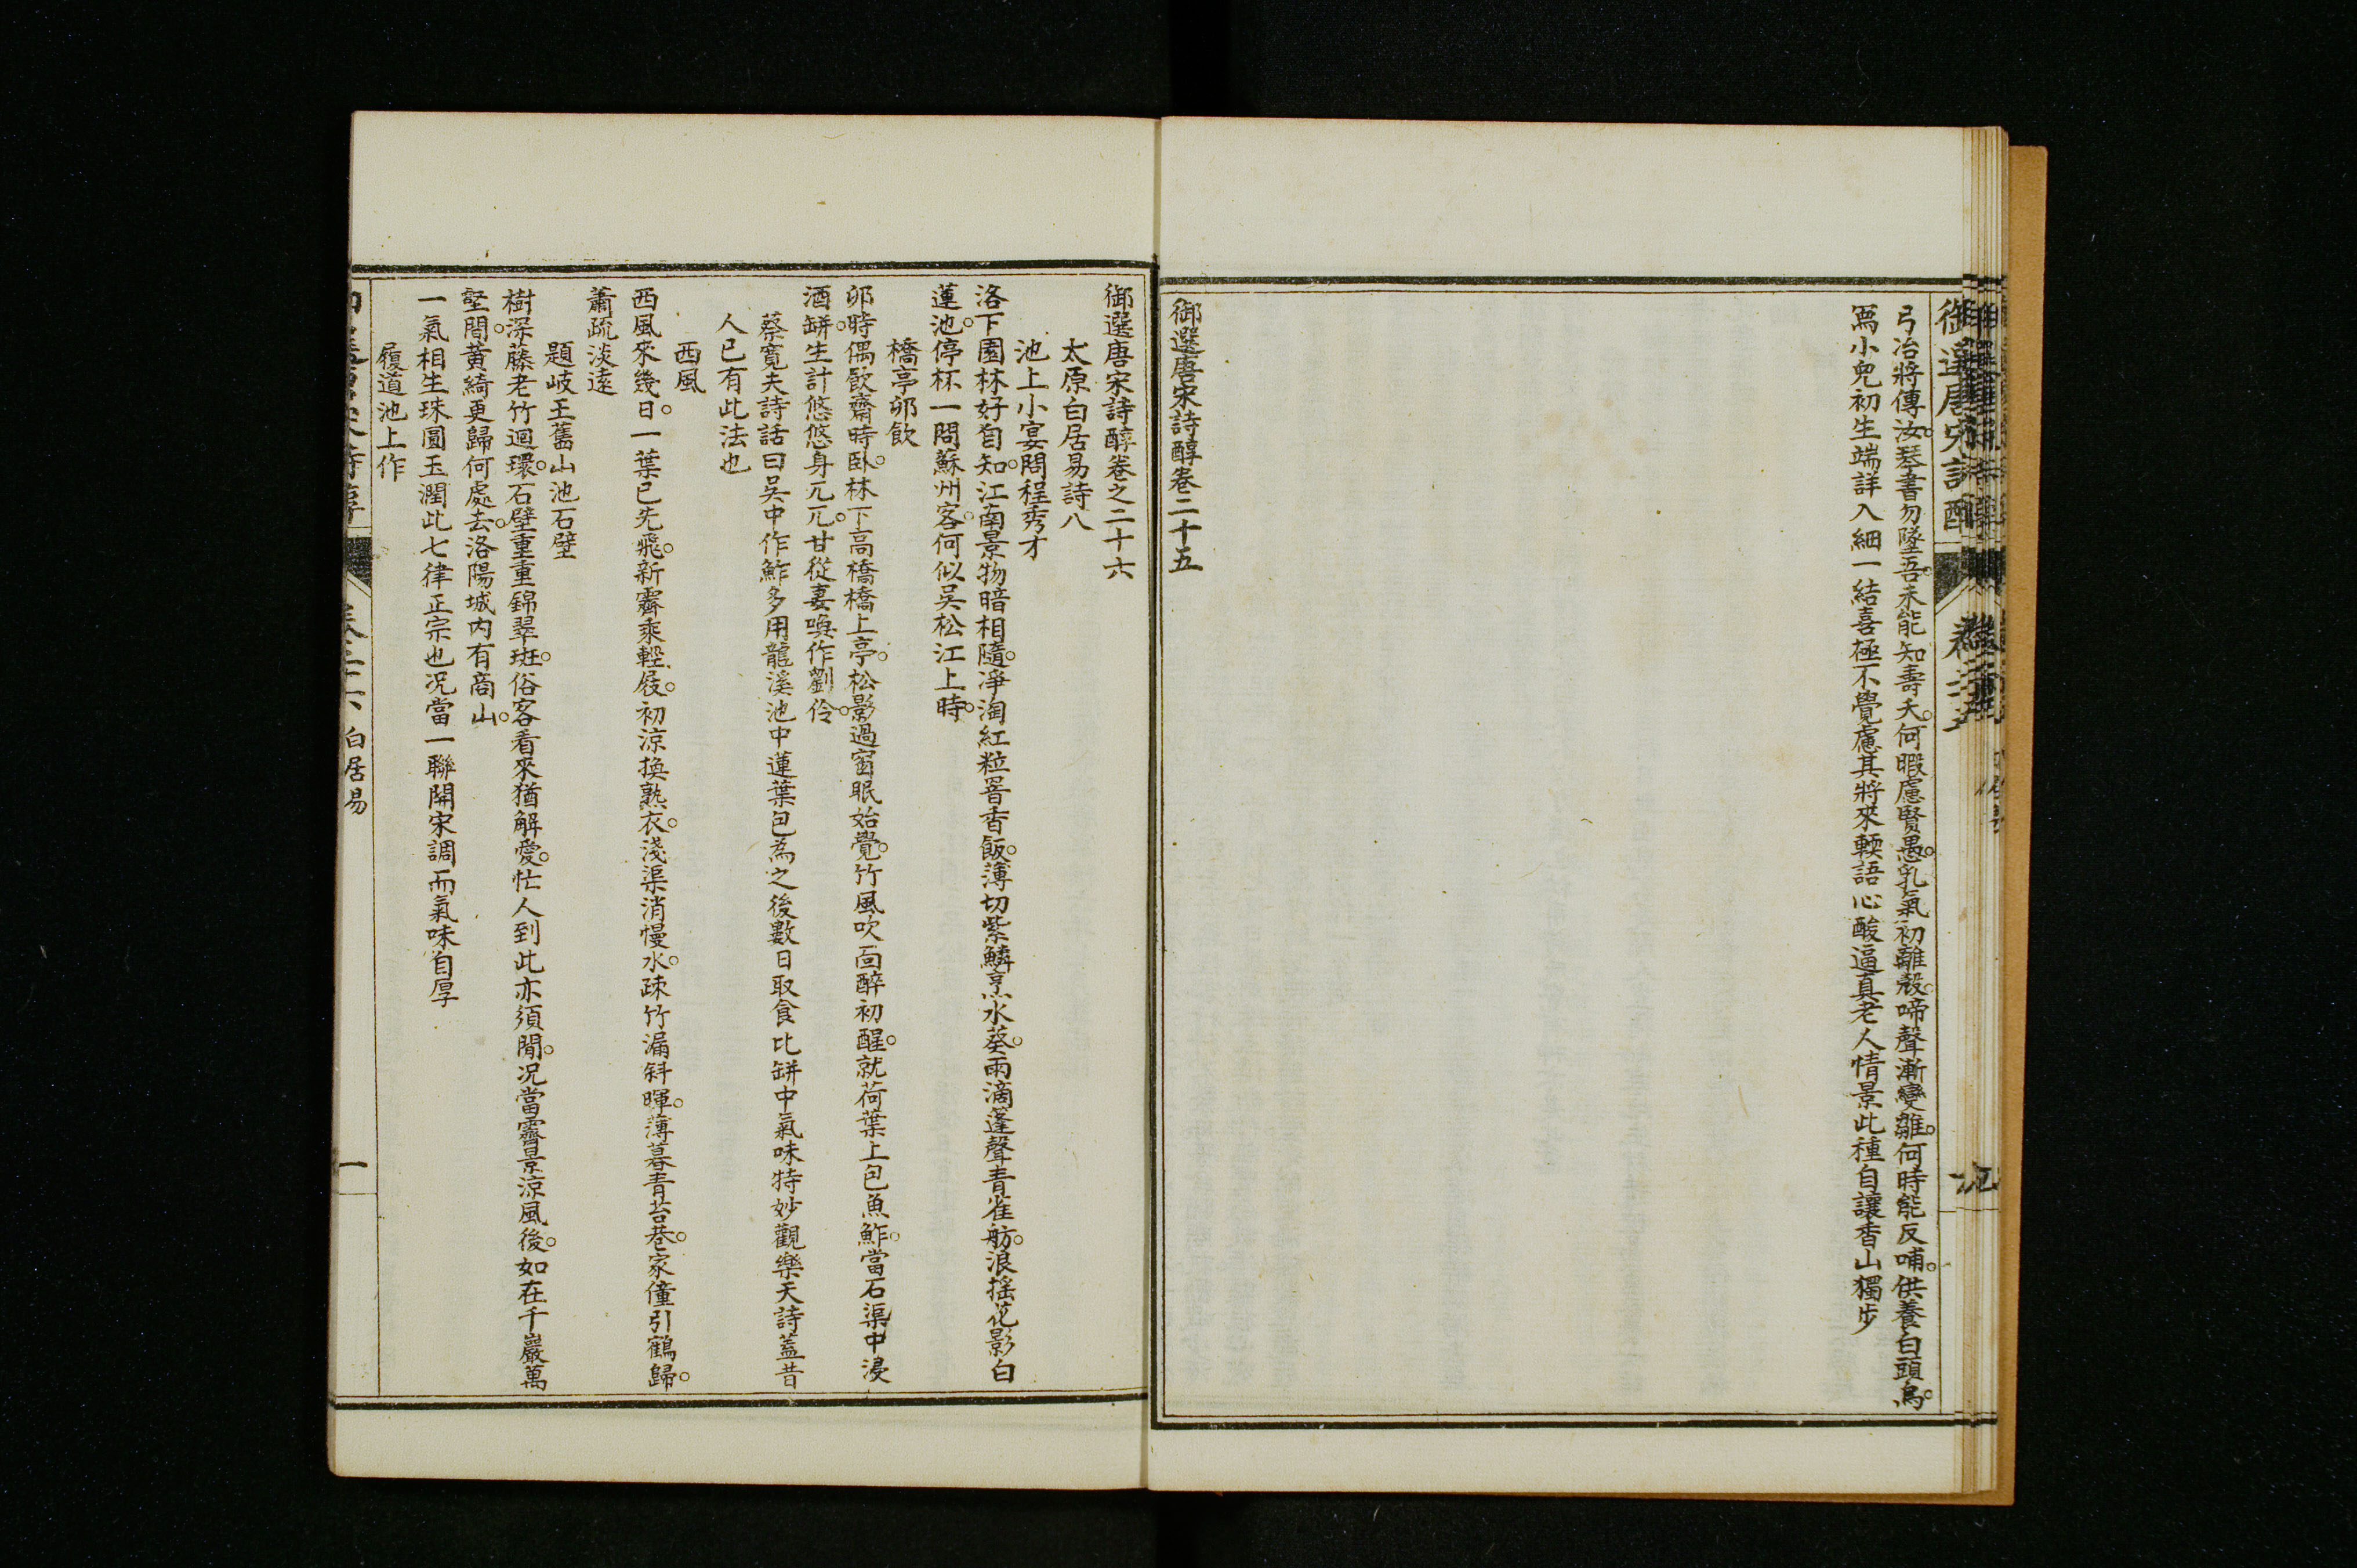 弓冶將傳汝琴書勿墜吾未能知壽夭何暇慮賢愚乳氣初離殼啼聲漸變雛何時能反哺供養白頭烏
爲小兒初生端詳入細一結喜極不覺慮其將來輭語心酸逼真老人情景此種自讓香山獨步
御選唐宋詩醇卷二十五
御選唐宋詩醇卷之二十六
太原白居易詩八
池上小宴問程秀才
洛下園林好自知江南景物暗相隨淨淘紅粒罯香飯薄切紫鱗烹水葵雨滴篷聲青雀舫浪搖花影白
蓮池停杯一問蘇州客何似吳松江上時
橋亭卯飲
卯時偶飲齋時臥林下高橋橋上亭松影過窗眠始覺竹風吹面醉初醒就荷葉上包魚鮓當石渠中浸
酒缾生計悠悠身兀兀甘從妻喚作劉伶
蔡寬夫詩話曰吳中作鮓多用龍溪池中蓮葉包為之後數日取食比缾中氣味特妙觀樂天詩蓋昔
人已有此法也
西風
西風來幾日一葉已先飛新霽乘輕屐初涼換熟衣淺渠消慢水疎竹漏斜暉薄暮青苔巷家僮引鶴歸
蕭疏淡遠
題岐王舊山池石壁
樹深藤老竹迴環石壁重重錦翠斑俗客看來猶解愛忙人到此亦須閒况當霽景涼風後如在千巖萬
壑間黃綺更歸何處去洛陽城內有商山
一氣相生珠圓玉潤此七律正宗也况當一聯開宋調而氣味自厚
履道池上作
白居易
一